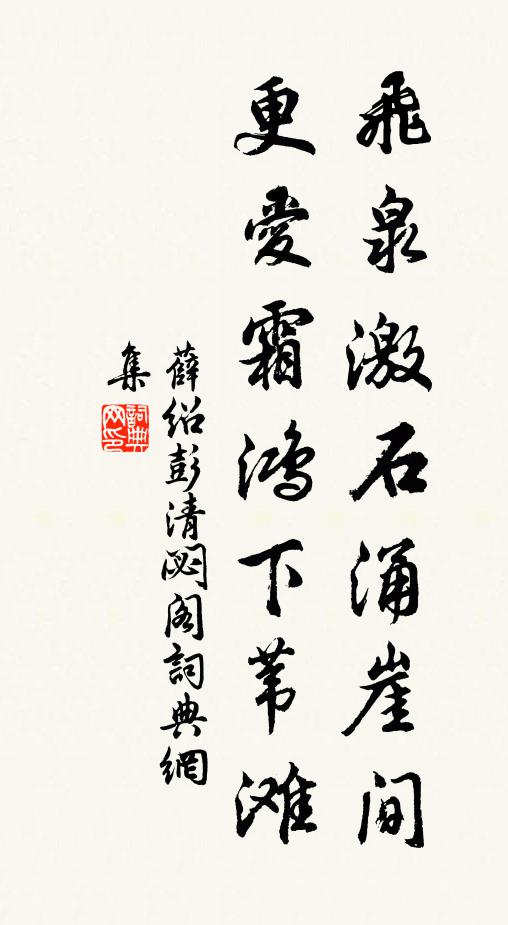 飛泉激石涌崖间
更愛霜鸿下苇滩
薛绍彭清閟阁詞典網
集
詞典网印